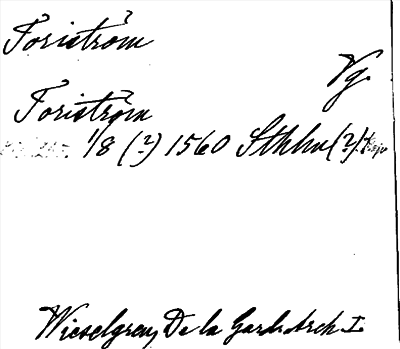 Toriström
Vg.
Toriström
1/8 (?) 1560 Sthlm (?).
Wieselgren, De la Gard. Arch I.